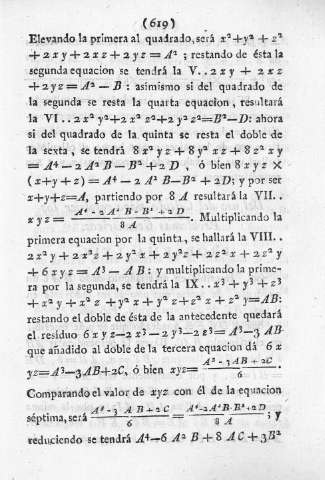 (619)
Elevando la primera al quadrado, será x²+y² + z²
+ 2 x y + 2 x z + 2 y z = A² ; restando de ésta la
segunda equacion se tendrá la V. . 2 x y + 2 x z
+ 2 y z = A² — B : asimismo si del quadrado de
la segunda se resta la quarta equacion , resultará
la VI . . 2 x² y²+2 x² z²+2 y² z²=B²—D: ahora
si del quadrado de la quinta se resta el doble de
la sexta , se tendrá 8 x² y z + 8 y² x z + 8 z² x y
= A⁴ — 2 A² B — B² + 2 D , ó bien 8 x y z ×
(x+y+z) = A⁴ — 2 A² B—B² + 2D; y por ser
x+y+z=A, partiendo por 8 A resultará la VII. .
x y z = A⁴ - 2 A² B - B² + 2 D / 8 A . Multiplicando la
primera equacion por la quinta, se hallará la VIII. .
2 x² y + 2 x² z + 2 y² x + 2 y² z + 2 z² x + 2 z² y
+ 6 x y z = A³ — A B : y multiplicando la prime-
ra por la segunda, se tendrá la IX. . x³ + y³ + z³
+ x² y + x² z + y² x + y² z + z² x + z² y=AB:
restando el doble de ésta de la antecedente quedará
el resíduo 6 x y z—2 x³ — 2 y³—2 z³= A³—3 AB
que añadido al doble de la tercera equacion dá 6 x
yz=A³—3AB+2C, ó bien xyz= A³ - 3 AB + 2C / 6 .
Comparando el valor de xyz con él de la equacion
séptima, será A³ - 3 A B + 2 C / 6 = A⁴-2A²B-B²+2D / 8 A ; y
reduciendo se tendrá A⁴—6 A² B + 8 A C + 3B²